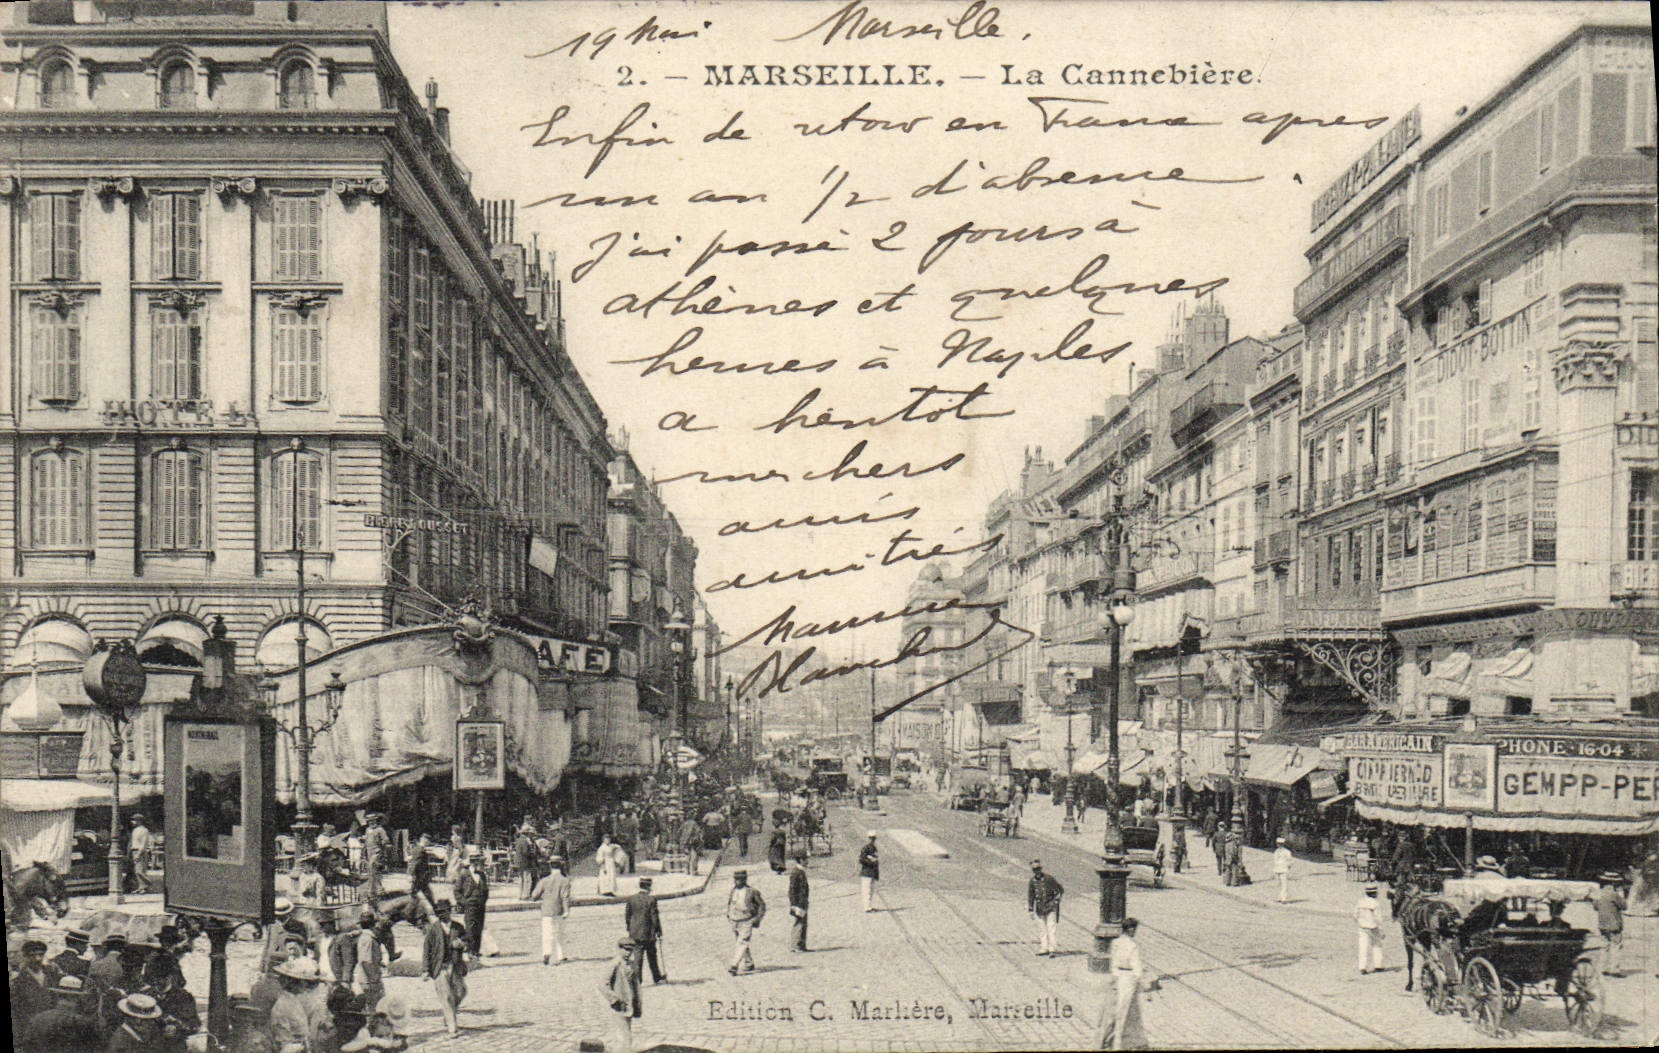 19 Mai Marseille.
2. – MARSEILLE. – La Cannebière.
Enfin de retour en France apres
un an 1/2 d'absence.
j'ai passé 2 jours à
athènes et quelques
heures à Naples
a bientôt
mes chers
amis
amitiés
HOTEL
CAFE
DIDOT-BOTTIN
BAR AMERICAIN
PHONE 16-04
GEMPP-PER
Edition C. Marlière, Marseille